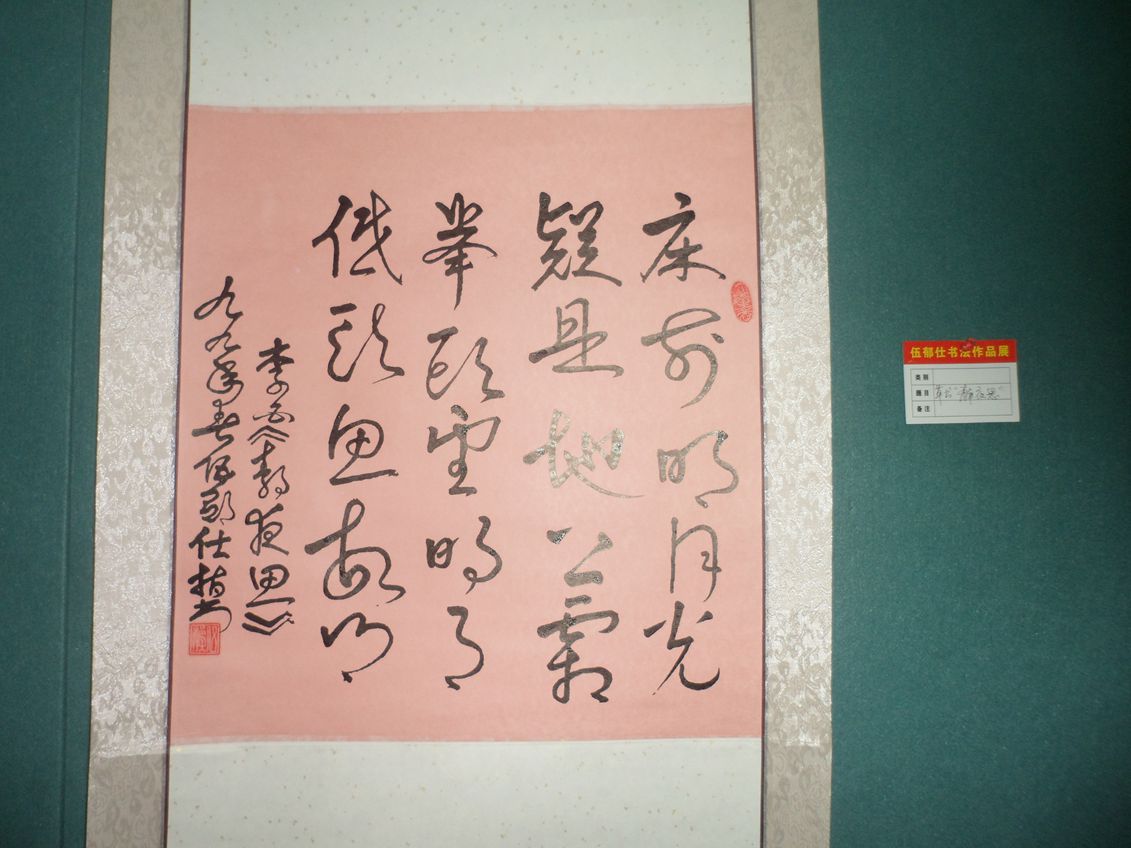 床前明月光
疑是地上霜
举头望明月
低头思故乡
李白《静夜思》
九九年春伍郁仕
伍郁仕书法作品展
类别
题目 草书"静夜思"
备注